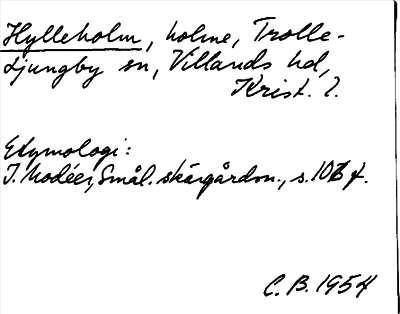 Hylleholm, holme, Trolle-
Ljungby sn, Villands hd,
Krist. l.
Etymologi:
I. Modéer, Smål. skärgårdsn., s. 107 f.
C. B. 1954